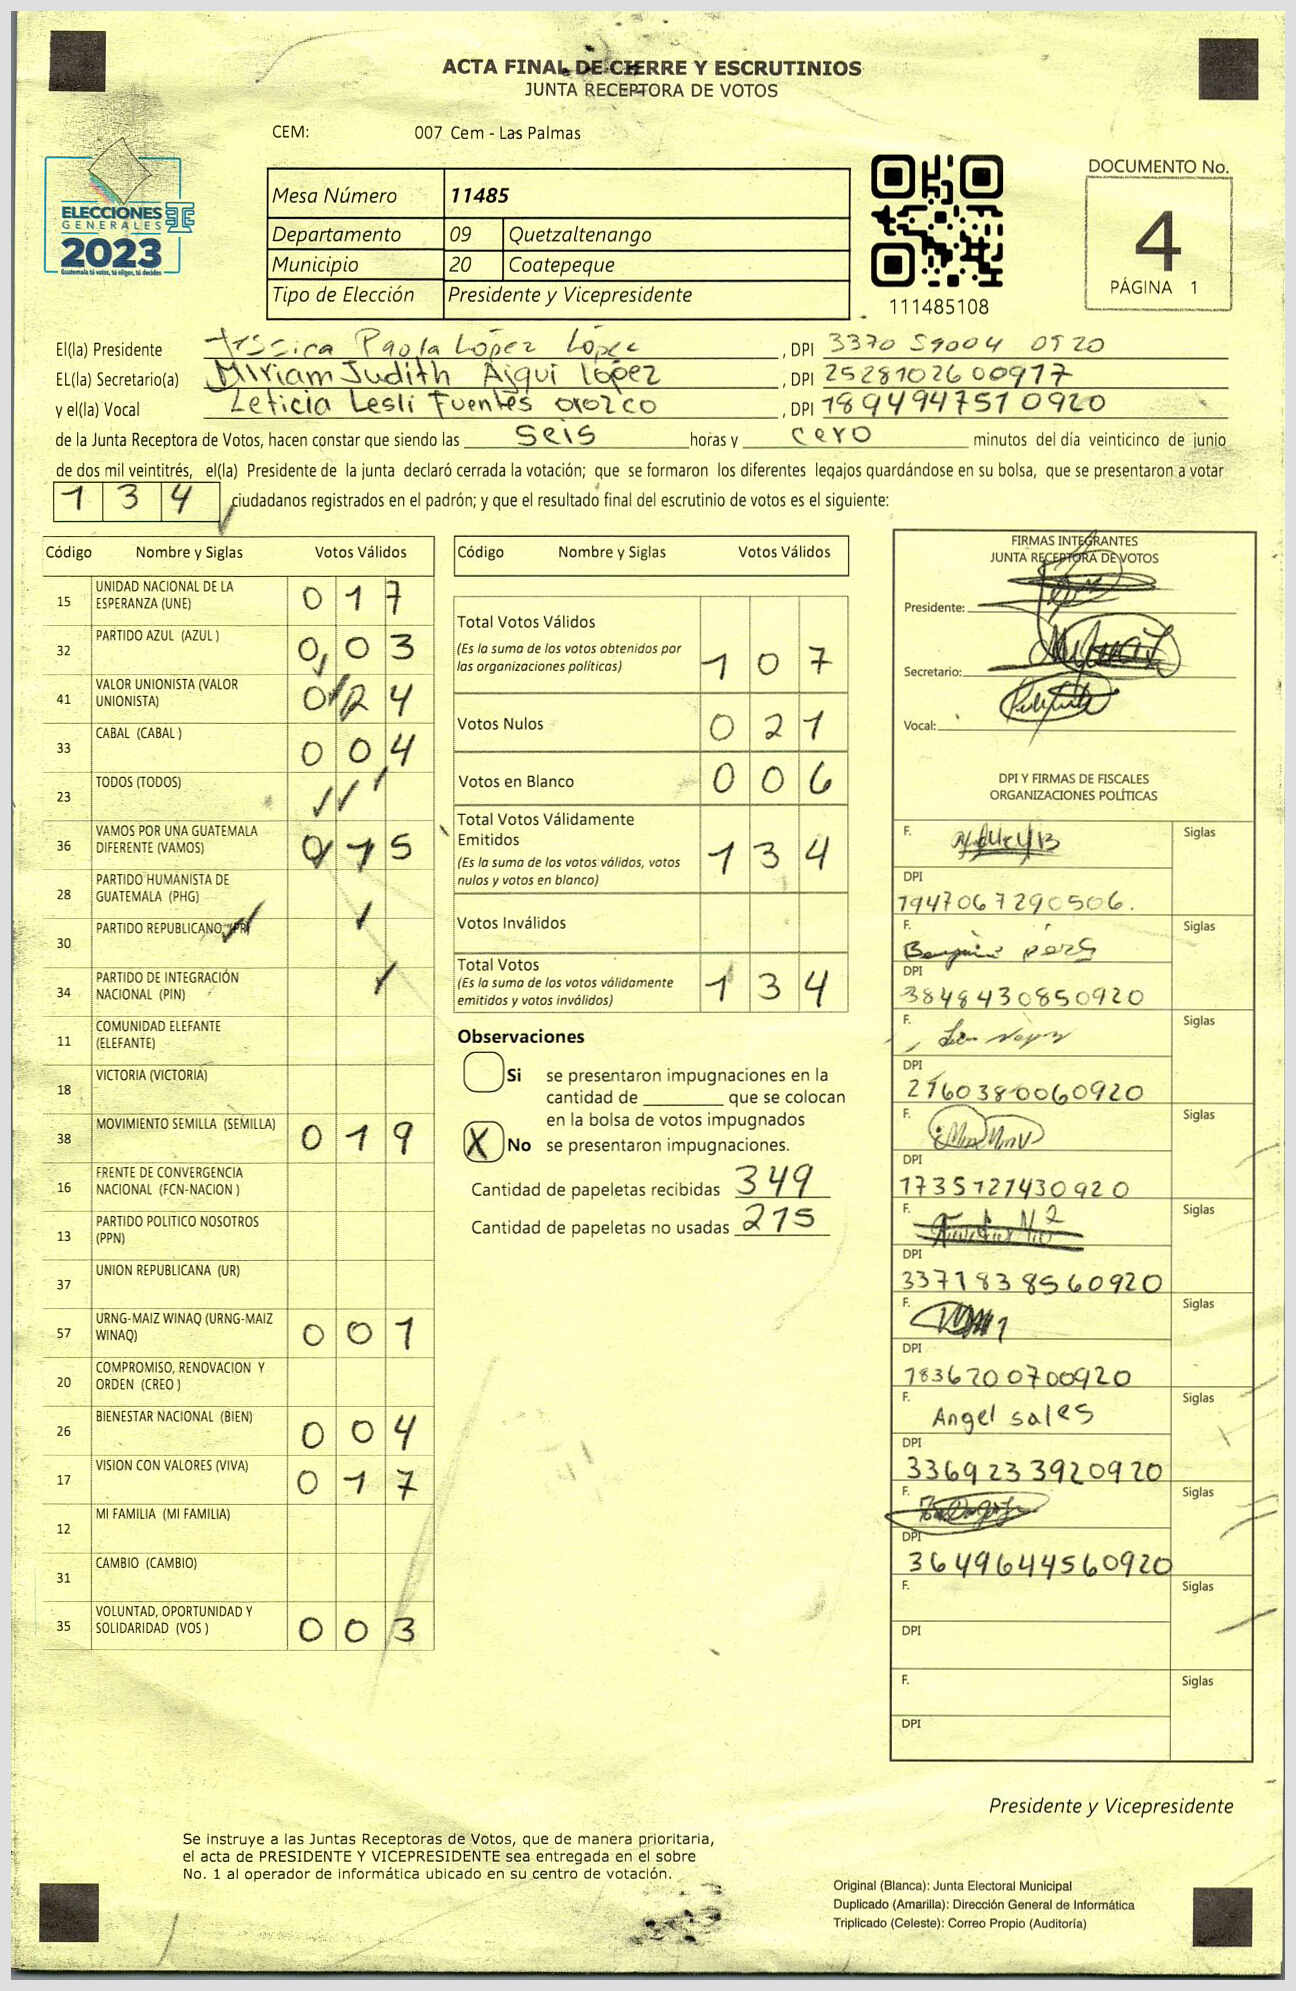 ACTA FINAL DE CIERRE Y ESCRUTINIOS
JUNTA RECEPTORA DE VOTOS
CEM: 007 Cem - Las Palmas
ELECCIONES
GENERALES
2023
Guatemala tú votas, tú eliges, tú decides
Mesa Número 11485
Departamento 09 Quetzaltenango
Municipio 20 Coatepeque
Tipo de Elección Presidente y Vicepresidente
111485108
DOCUMENTO No.
4
PÁGINA 1
El(la) Presidente Jessica Paola López López , DPI 3370 59004 0920
EL(la) Secretario(a) Miriam Judith Ajqui López , DPI 2528102600917
y el(la) Vocal Leticia Lesli Fuentes Orozco , DPI 1894947510920
de la Junta Receptora de Votos, hacen constar que siendo las seis horas y cero minutos del día veinticinco de junio
de dos mil veintitrés, el(la) Presidente de la junta declaró cerrada la votación; que se formaron los diferentes legajos quardándose en su bolsa, que se presentaron a votar
134 ciudadanos registrados en el padrón; y que el resultado final del escrutinio de votos es el siguiente:
Código Nombre y Siglas Votos Válidos
15 UNIDAD NACIONAL DE LA ESPERANZA (UNE) 017
32 PARTIDO AZUL (AZUL ) 003
41 VALOR UNIONISTA (VALOR UNIONISTA) 024
33 CABAL (CABAL ) 004
23 TODOS (TODOS)
36 VAMOS POR UNA GUATEMALA DIFERENTE (VAMOS) 015
28 PARTIDO HUMANISTA DE GUATEMALA (PHG)
30 PARTIDO REPUBLICANO (PR)
34 PARTIDO DE INTEGRACIÓN NACIONAL (PIN)
11 COMUNIDAD ELEFANTE (ELEFANTE)
18 VICTORIA (VICTORIA)
38 MOVIMIENTO SEMILLA (SEMILLA) 019
16 FRENTE DE CONVERGENCIA NACIONAL (FCN-NACION )
13 PARTIDO POLITICO NOSOTROS (PPN)
37 UNION REPUBLICANA (UR)
57 URNG-MAIZ WINAQ (URNG-MAIZ WINAQ) 001
20 COMPROMISO, RENOVACION Y ORDEN (CREO )
26 BIENESTAR NACIONAL (BIEN) 004
17 VISION CON VALORES (VIVA) 017
12 MI FAMILIA (MI FAMILIA)
31 CAMBIO (CAMBIO)
35 VOLUNTAD, OPORTUNIDAD Y SOLIDARIDAD (VOS ) 003
Código Nombre y Siglas Votos Válidos
Total Votos Válidos 107
(Es la suma de los votos obtenidos por las organizaciones políticas)
Votos Nulos 021
Votos en Blanco 006
Total Votos Válidamente Emitidos 134
(Es la suma de los votos válidos, votos nulos y votos en blanco)
Votos Inválidos
Total Votos 134
(Es la suma de los votos válidamente emitidos y votos inválidos)
Observaciones
Si se presentaron impugnaciones en la
cantidad de ________ que se colocan
en la bolsa de votos impugnados
X No se presentaron impugnaciones.
Cantidad de papeletas recibidas 349
Cantidad de papeletas no usadas 215
FIRMAS INTEGRANTES
JUNTA RECEPTORA DE VOTOS
Presidente:
Secretario:
Vocal:
DPI Y FIRMAS DE FISCALES
ORGANIZACIONES POLÍTICAS
F. Siglas
DPI 1947067290506.
F. Siglas
DPI 3848430850920
F. Siglas
DPI 2160380060920
F. Siglas
DPI 1735121430920
F. Siglas
DPI 3371838560920
F. Siglas
DPI 1836200700920
F. Angel sales Siglas
DPI 3369233920920
F. Siglas
DPI 3649644560920
F. Siglas
DPI
F. Siglas
DPI
Presidente y Vicepresidente
Se instruye a las Juntas Receptoras de Votos, que de manera prioritaria,
el acta de PRESIDENTE Y VICEPRESIDENTE sea entregada en el sobre
No. 1 al operador de informática ubicado en su centro de votación.
Original (Blanca): Junta Electoral Municipal
Duplicado (Amarilla): Dirección General de Informática
Triplicado (Celeste): Correo Propio (Auditoría)